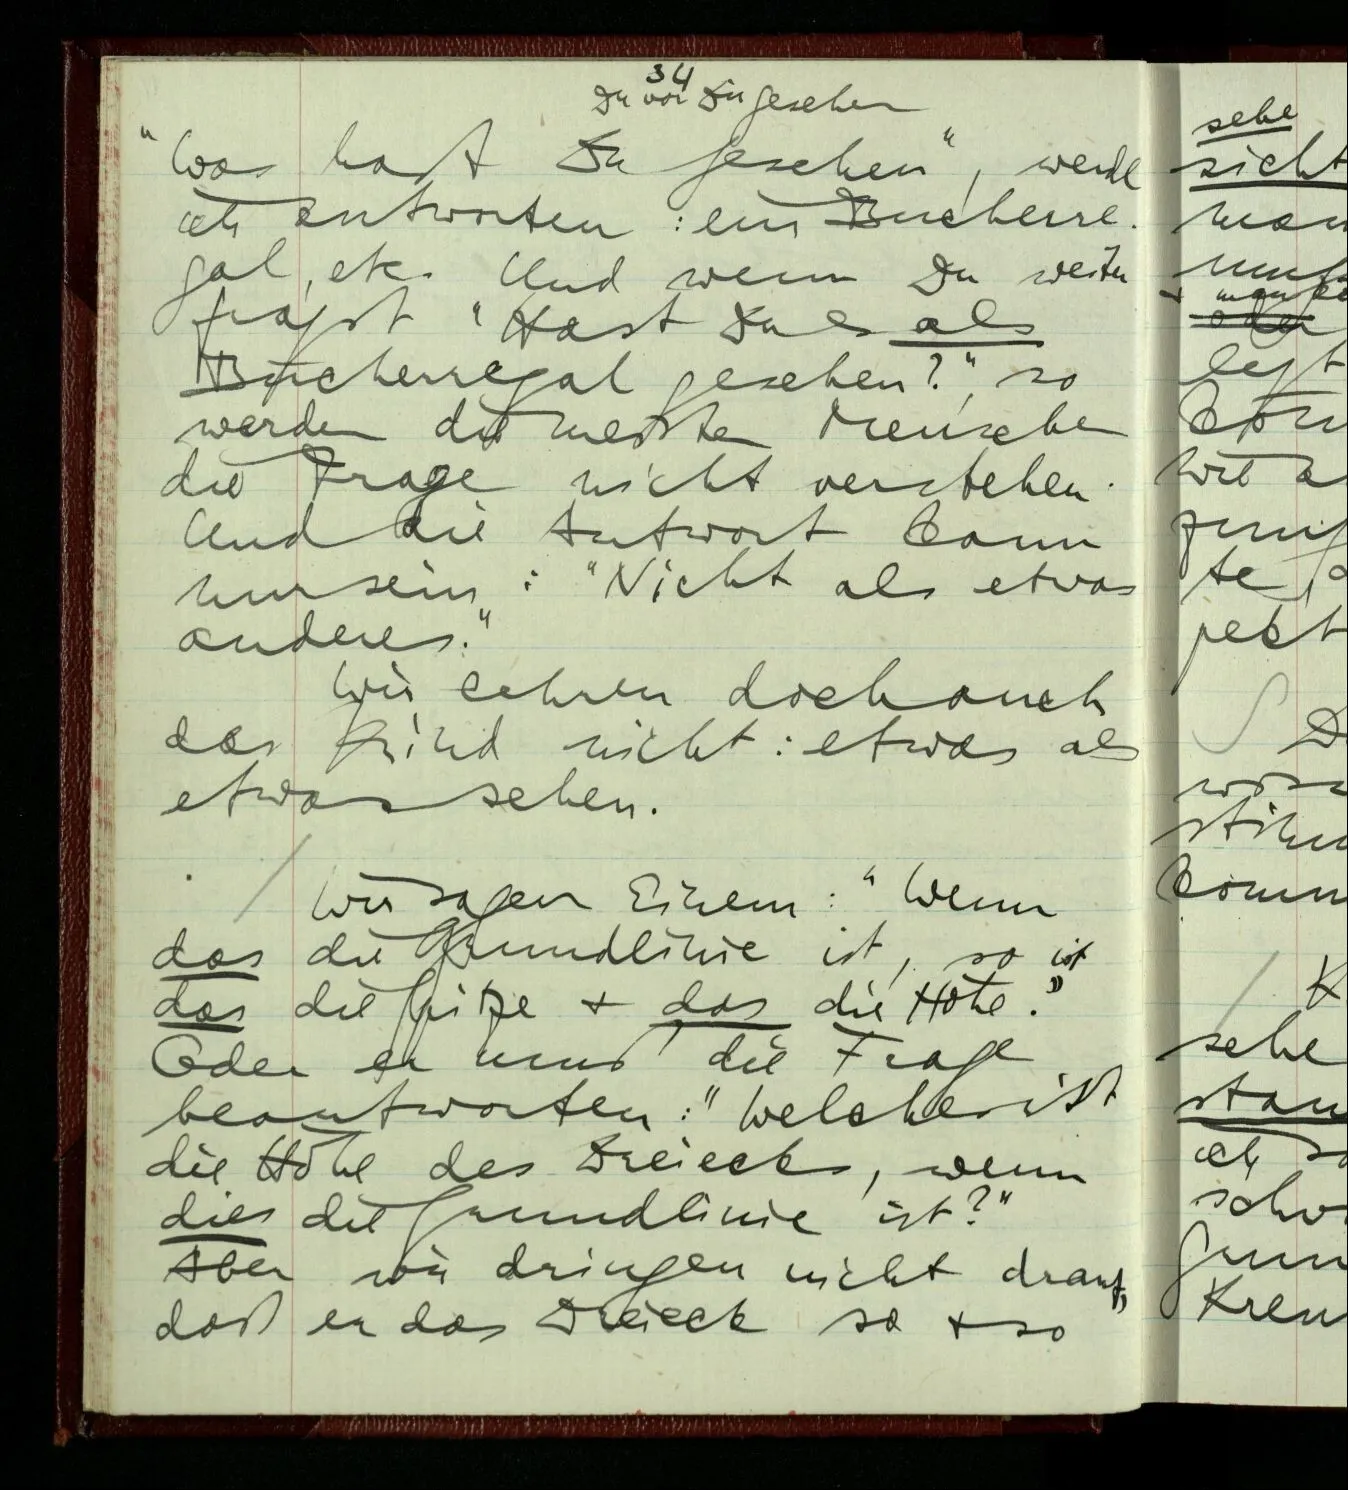 34
Du vor Dir gesehen
"Was hast Du gesehen", werde
ich antworten: ein Bücherre-
gal, etc. Und wenn Du weiter
fragst "Hast Du es als
Bücherregal gesehen?", so
werden die meisten Menschen
die Frage nicht verstehen.
Und die Antwort kann
nur sein: "Nicht als etwas
anderes."
Wir lehren doch auch
das Kind nicht: etwas als
etwas sehen.
Wir sagen Einem: "Wenn
das die Grundlinie ist, so ist
das die Spitze + das die Höhe."
Oder er muß die Frage
beantworten: "Welches ist
die Höhe des Dreiecks, wenn
dies die Grundlinie ist?"
Aber wir dringen nicht drauf,
daß er das Dreieck so + so
sehe
sicht
man
oder
legt
wie
te,
jekt
K
sehe
stan
ich so
Kreu